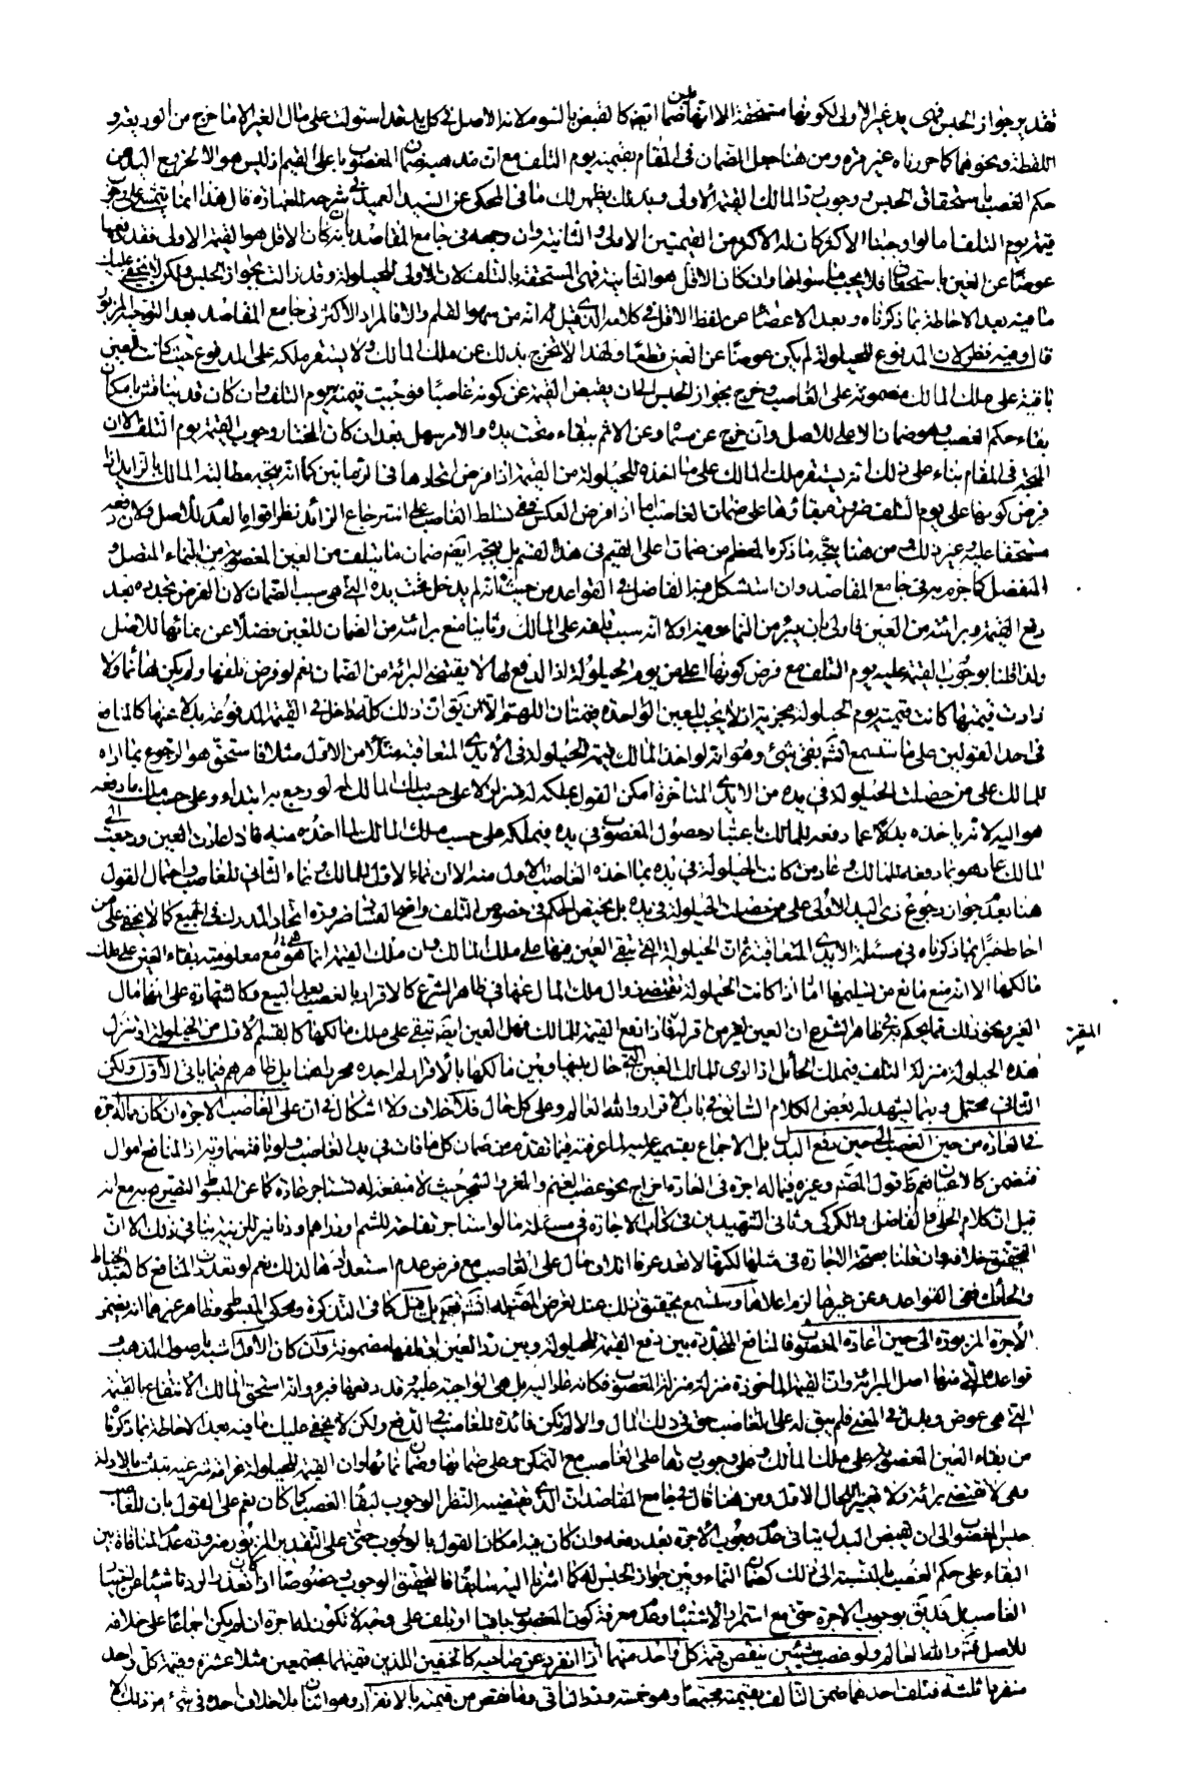 تقدير جواز الحبس فهى يد غير الاولى لكونها مستحقة الا انها ضمان ايضا كالقبض بالسوم لانه الاصل فى كل يد استولت على مال الغير الا ما خرج من الوديعة و
اللقطة ونحوهما كما حررناه غير مرة ومن هنا جعل الضمان فى المقام بقيمته يوم التلف مع ان مذهبه ضمان المغصوب باعلى القيم اذ ليس هو الا لخروج اليد من
حكم الغصب باستحقاق الحبس و وجوب رد المالك القيمة الاولى وبذلك يظهر لك ما فى المحكى عن السيد العميد فى شرحه للعبارة قال هذا انما يتمشى على وجوب
قيمة يوم التلف اما لو اوجبنا الاكثر كان له الاكثر من القيمتين الاولى والثانية وان وجهه فى جامع المقاصد بانه ان كان الاقل هو القيمة الاولى فقد دفعها
عوضا عن العين باستحقاق فلا يجب ما سواها وان كان الاقل هو الثانية فهى المستحقة بالتلف لان الاولى للحيلولة وقد زالت بجواز الحبس ولكن لا يخفى عليك
ما فيه بعد الاحاطة بما ذكرناه وبعد الاغضاء عن لفظ الاقل فى كلامه الذى قيل انه من سهو القلم والا فالمراد الاكثر فى جامع المقاصد بعد التوجيه المزبور
قال وفيه نظر لان المدفوع للحيلولة لم يكن عوضا عن العين قطعا ولهذا لا تخرج بذلك عن ملك المالك ولا يستقر ملكه على المدفوع حيث كانت العين
باقية على ملك المالك مضمونة على الغاصب وخرج بجواز الحبس الى ان يقبض القيمة عن كونه غاصبا فوجبت قيمته يوم التلف وان كان قد يناقش بامكان
بقاء حكم الغصب وهو ضمان الاعلى للاصل وان خرج عن مسماه وعن الاثم ببقاءه تحت يده والامر سهل بعد ان كان المختار وجوب القيمة يوم التلف لان
المتجه فى المقام بناء على ذلك انه يستقر ملك المالك على ما اخذه للحيلولة من القيمة اذا فرض اتحادها فى الزمانين كما انه يتجه مطالبة المالك بالزايد اذا
فرض كونها على يوم التلف ضرورة بقاؤها على ضمان الغاصب اما اذا فرض العكس ففى تسلط الغاصب على استرجاع الزائد نظر اقواه العدم للاصل ولان دفعه
مستحقا عليه وغير ذلك ومن هنا يتجه ما ذكره المعظم من ضمان اعلى القيم فى هذا القسم بل يتجه ايضا ضمان ما يتلف من العين المغصوبة من النماء المتصل و
المنفصل كما جزم به فى جامع المقاصد وان استشكل فيه الفاضل فى القواعد من حيث انه لم يدخل تحت يده التى هى سبب الضمان لان الفرض تجدده بعد
دفع القيمة وبرائته من العين فاولى بان يبرء من النماء وفيه اولا انه سبب تلفه على المالك وثانيا منع برائته من الضمان للعين فضلا عن نمائها للاصل
ولذا قلنا بوجوب القيمة عليه يوم التلف مع فرض كونها اعلى من يوم الحيلولة اذ الدفع لها لا يقتضى البرائة من الضمان نعم لو فرض تلفها ولم يكن لها نماء ولا
زادت قيمتها كانت قيمته يوم الحيلولة مجزية اذ لا يجب للعين الواحدة قيمتان اللهم الا ان يق ان ذلك كله داخل فى القيمة المدفوعة بدلا عنها كالمنافع
فى احد القولين على ما ستسمع انشاء بقى شىء وهو انه لو اخذ المالك قيمة الحيلولة فى الايدى المتعاقبة مثلا من الاول مثلا فاستحق هو الرجوع بما اداه
للمالك على من حصلت الحيلولة فى يده من الايدى المتاخرة امكن القول بملكه له متزلزلا على حسب ملك المالك له لو رجع به ابتداء وعلى حسب ملك ما دفعه
هو اليه لانه ياخذه بدلا عما دفعه للمالك باعتبار حصول المغصوب فى يده فيملكه على حسب ملك المالك لما اخذه منه فاذا عادت العين ورجعت الى
المالك عاد هو بما دفعه للمالك وعاد من كانت الحيلولة فى يده بما اخذه الغاصب الاول منه الا ان نماء الاول للمالك ونماء الثانى للغاصب واحتمال القول
هنا بعدم جواز رجوع ذى اليد الاولى على من حصلت الحيلولة فى يده بل يختص الحكم فى خصوص التلف واضح الفساد ضرورة اتحاد المدرك فى الجميع كما لا يخفى على من
احاط خبرا بما ذكرناه فى مسئلة الايدى المتعاقبة ثم ان الحيلولة التى تبقى العين فيها على ملك المالك وان ملك القيمة انما هو مع معلومية بقاء العين على ملك
مالكها الا انه منع مانع من تسليمها اما اذا كانت الحيلولة تقتضى زوال ملك المال عنها فى ظاهر الشرع كالاقرار بالغصب بعد البيع وكالشهادة على انها مال
الغير ونحو ذلك مما يحكم به فى ظاهر الشرع ان العين لغير من اقر له فاذا دفع القيمة للمالك فهل العين ايضا تبقى على ملك مالكها كالقسم الاول من الحيلولة او تنزل
المقر
هذه الحيلولة منزلة التلف فيملك الحائل اذا ادى للمالك العين التى حال بينها وبين مالكها بالاقرار لم اجده محررا هنا بل ظاهرهم فيما ياتى الاول ولكن
الثانى محتمل وربما يشهد له بعض الكلام السابق فى باب الاقرار والله العالم وعلى كل حال فلا خلاف ولا اشكال فى ان على الغاصب الاجرة ان كان مما له اجرة
فى العادة من حين الغصب الى حين دفع البدل بل الاجماع بقسميه عليه لما عرفته فيما تقدم من ضمان كل ما فات فى يد الغاصب ولو بافتهما وية اذ المنافع اموال
فتضمن كالاعيان نعم ظ قول المصنف وغيره فيما له اجرة فى العادة اخراج نحو غصب الغنم والمغرة والشجر حيث لا منفعة له تستاجر عادة كما عن المبسوط التصريح به مع انه
قيل ان كلام الحلى والفاضل والكركى وثانى الشهيدين فى كتاب الاجارة فى مسئلة ما لو استاجر تفاحة للشم او دراهم ودنانير للزينة ينافى ذلك الا ان
التحقيق خلافه وان قلنا بصحة الاجارة فى مثلها لكنها لا تعد عرفا اتلاف مال على الغاصب مع فرض عدم استعداده لها لذلك نعم لو تعددت المنافع كالعبد الخياط
والحائك ففى القواعد وعن غيرها لزم اعلاها وستسمع تحقيق ذلك عند تعرض المصنف له انشاء نعم بل قيل كما فى التذكرة ومحكى المبسوط وظاهر غيرهما انه يضمن
الاجرة المزبورة الى حين اعادة المغصوب فالمنافع المتجددة بين دفع القيمة للحيلولة وبين رد العين او تلفها مضمونة وان كان الاول اشبه باصول المذهب و
قواعده التى منها اصل البرائة وان القيمة الماخوذة منزلة منزلة المغصوب فكانه عاد اليه بل هى الواجبة عليه وقد دفعها فبرء وانه استحق المالك الانتفاع بالقيمة
التى هى عوض وبدل فى المغنى فلم يبق له على الغاصب حق فى ذلك المال والا لم تكن فائدة للغاصب فى الدفع ولكن لا يخفى عليك ما فيه بعد الاحاطة بما ذكرنا
من بقاء العين المغصوبة على ملك المالك وعلى وجوب ردها على الغاصب مع التمكن وعلى ضمانها وضمان نمائها وان القيمة للحيلولة غرامة شرعية ثبتت بالادلة
فهى لا تقتضى برائة ولا تغيير للحال الاول ومن هنا قال فى جامع المقاصد ان الذى يقتضيه النظر الوجوب لبقاء الغصب كما كان نعم على القول بان للغاصب
حبس المغصوب الى ان يقبض البدل يتاتى عدم وجوب الاجرة بعد دفعه وان كان فيه امكان القول بالوجوب حتى على التقدير المزبور ضرورة عدم المنافاة بين
البقاء على حكم الغصب بالنسبة الى ذلك كضمان النماء وبين جواز الحبس له كما اشرنا اليه سابقا فالتحقيق الوجوب خصوصا اذا كان تعذر الرد ناشئا عن تقصير
الغاصب بل قد يق بوجوب الاجرة حتى مع استمرار الاشتباه وعدم معرفة كون المغصوب باقيا او تلف على وجه لا تكون له اجرة ان لم يكن اجماعا على خلافه
للاصل فتأمل والله العالم ولو غصب شيئين ينقص قيمة كل واحد منهما اذا انفرد عن صاحبه كالخفين اللذين قيمتهما مجتمعين مثلا عشرة وقيمة كل واحد
منفردا ثلثة فتلف احدهما ضمن التالف بقيمته مجتمعا وهو خمسة ورد الباقى وما نقص من قيمته بالانفراد وهو اثنان بلا خلاف اجده فى شىء من ذلك الا